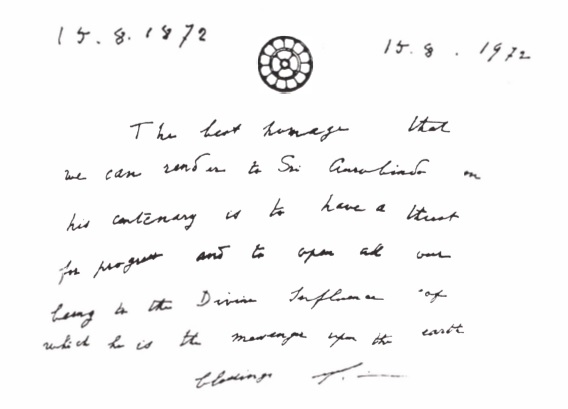 15.8.1872 15.8.1972
The best homage that
we can render to Sri Aurobindo on
his centenary is to have a thirst
for progress and to open all our
being to the Divine Influence of
which he is the messenger upon the earth
blessings